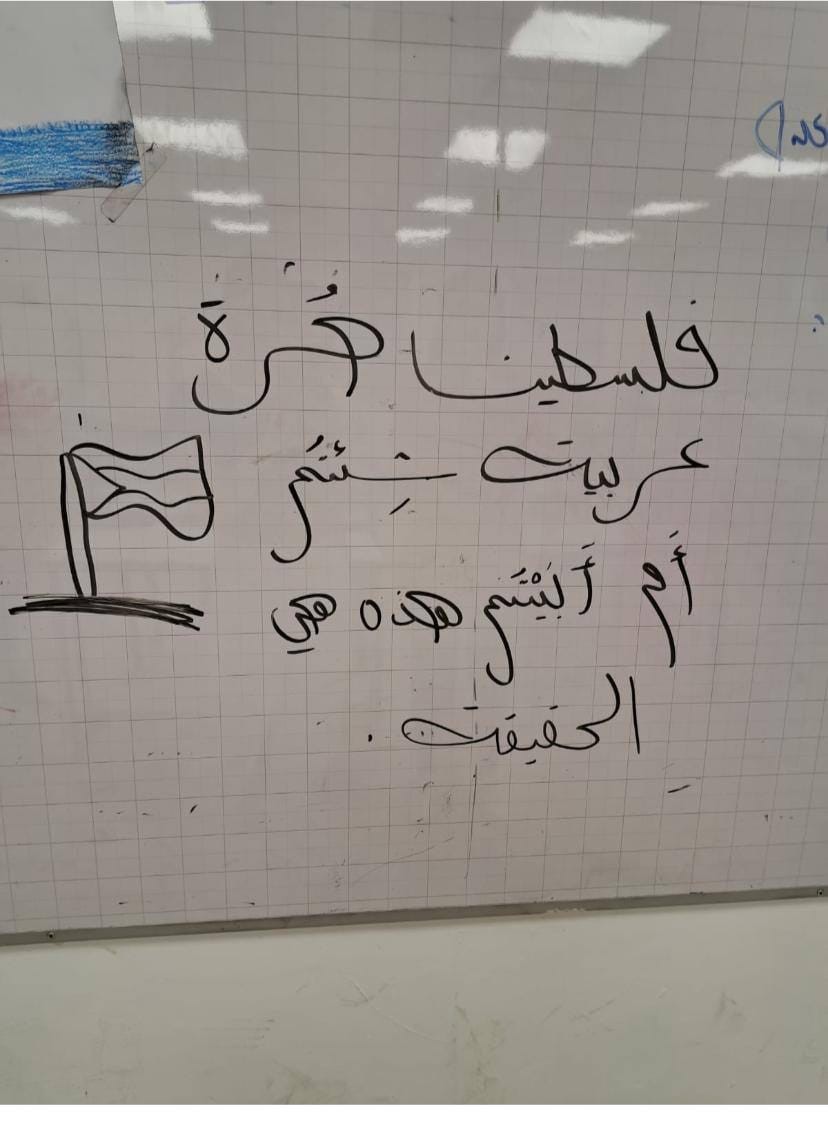 فلسطينا حُرة
عربية شِئتُم
أَم أَبَيْتُم هذه هي
الحقيقة.